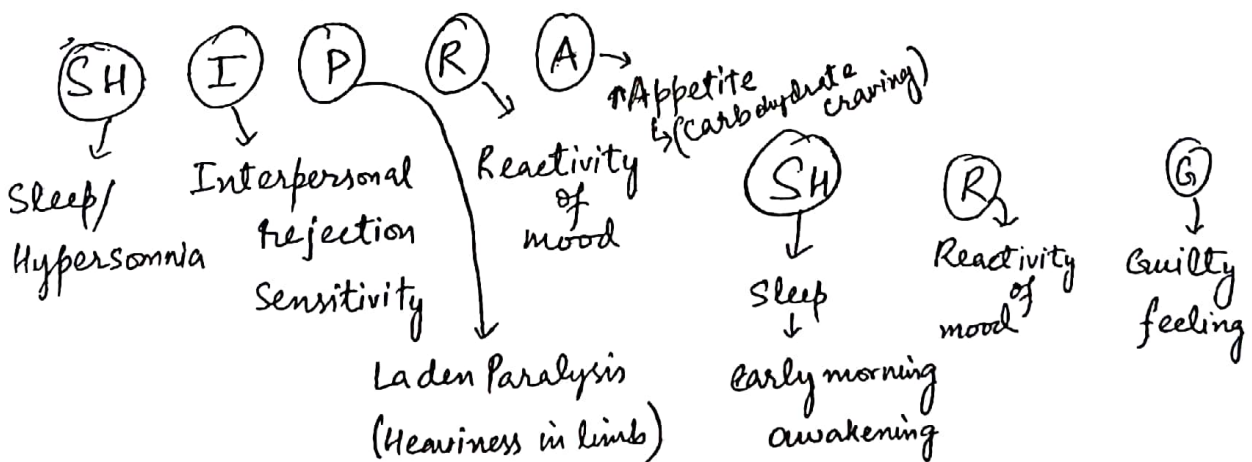 SH I P R A
↑Appetite
↳(Carbohydrate craving)
Sleep/
Hypersomnia
Interpersonal
rejection
Sensitivity
Laden Paralysis
(Heaviness in limb)
Reactivity
of
mood
SH R G
Sleep
↓
Early morning
awakening
Reactivity
of
mood
Guilty
feeling